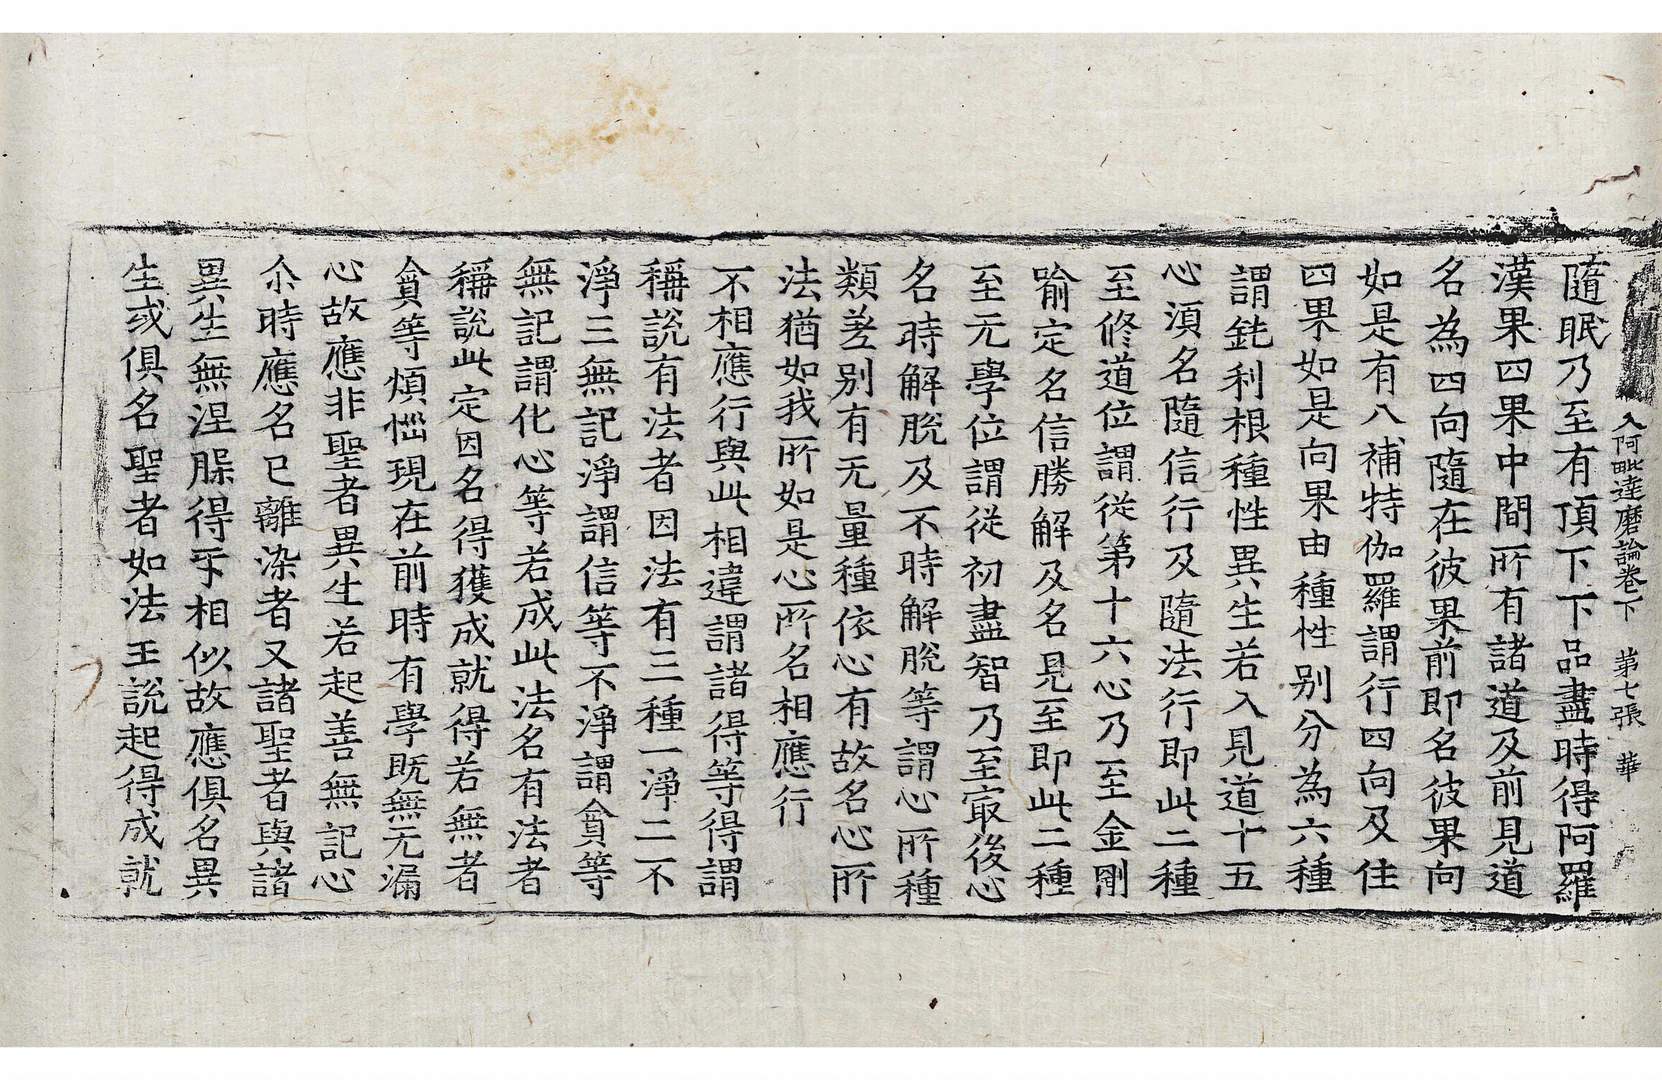 入阿毗達磨論卷下　第七張　華
隨眠乃至有頂下下品盡時得阿羅
漢果四果中間所有諸道及前見道
名為四向隨在彼果前即名彼果向
如是有八補特伽羅謂行四向及住
四果如是向果由種性別分為六種
謂鈍利根種性異生若入見道十五
心湏名隨信行及隨法行即此二種
至修道位謂從第十六心乃至金剛
喻定名信勝解及名見至即此二種
至无學位謂從初盡智乃至㝡後心
名時解脫及不時解脫等謂心所種
類差別有无量種依心有故名心所
法猶如我所如是心所名相應行
不相應行與此相違謂諸得等得謂
稱說有法者因法有三種一淨二不
淨三無記淨謂信等不淨謂貪等
無記謂化心等若成此法名有法者
稱說此定因名得獲成就得若無者
貪等煩惱現在前時有學既無无漏
心故應非聖者異生若起善無記心
尒時應名已離染者又諸聖者與諸
異生無涅槃得乎相似故應俱名異
生或俱名聖者如法王說起得成就